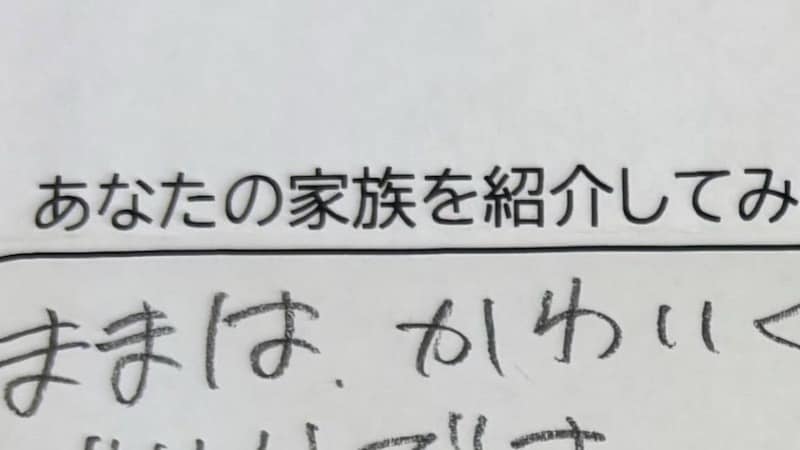 あなたの家族を紹介してみ
ままは、かわいく
です